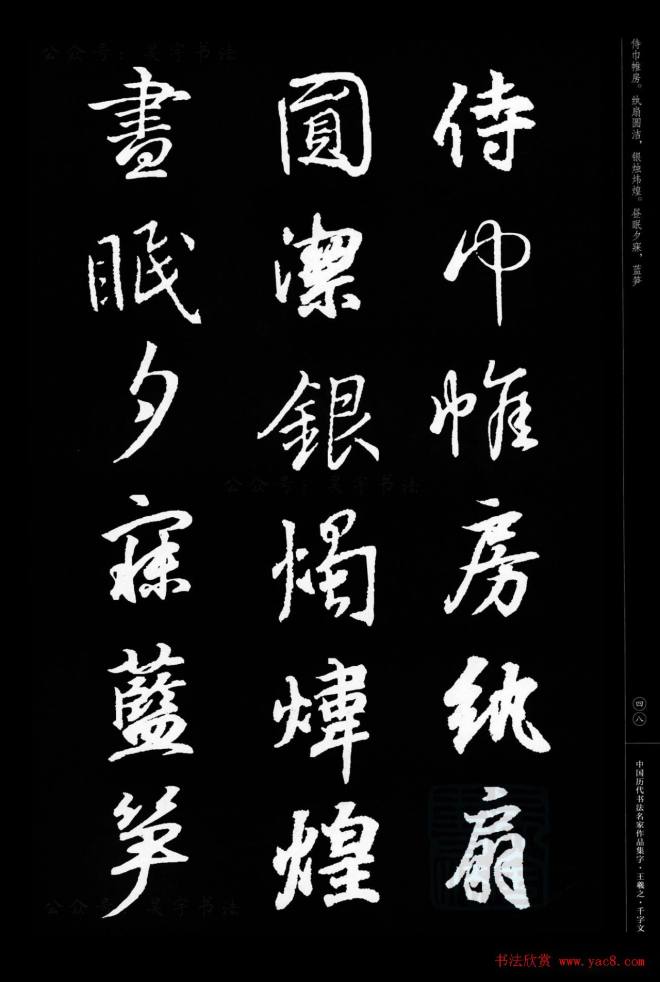 侍巾帷房纨扇
圓潔銀燭煒煌
晝眠夕寐藍笋
侍巾帷房。纨扇圆洁，银烛炜煌。昼眠夕寐，蓝笋
四八
中国历代书法名家作品集字·王羲之·千字文
公众号：昊宇书法
公众号：昊宇书法
公众号：昊宇书法
书法欣赏 www.yac8.com